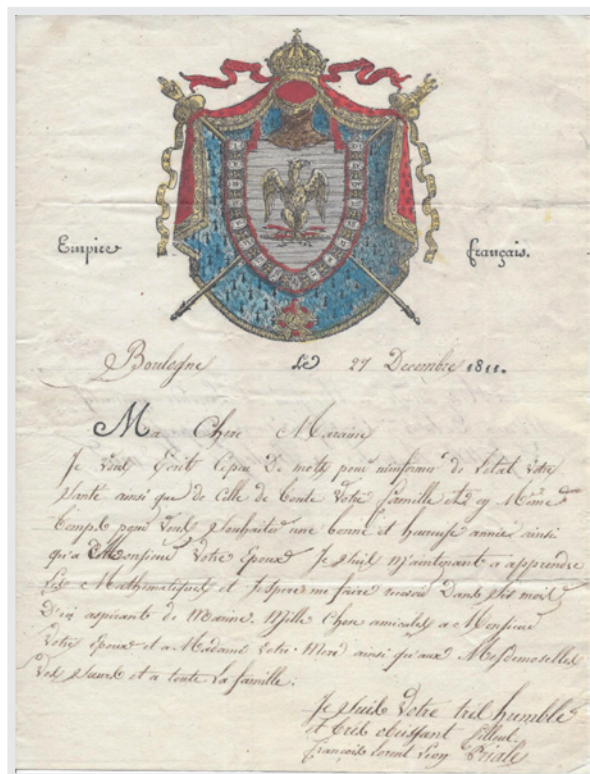 Empire français.
Boulogne Le 27 Decembre 1811.
Ma Chere Maraine
Je vous Ecrit Ce peu De mots pour m'informer de l'etat Votre
Santé ainsi que de Celle de toute Votre famille et en Même
temps pour vous Souhaiter une bonne et heureuse année ainsi
qu'a Monsieur Votre Epoux Je Suis Maintenant a apprendre
Les Mathematiques et J'espere me faire recevoir Dans Six mois
D'ici aspirants de Marine. Mille Choses amicales a Monsieur
Votre Epoux et a Madame Votre Mere ainsi qu'aux Mesdemoselles
Vos Sœurs et a toute La famille.
Je Suis Votre tres humble
et tres obeissant filleul.
françois Leon